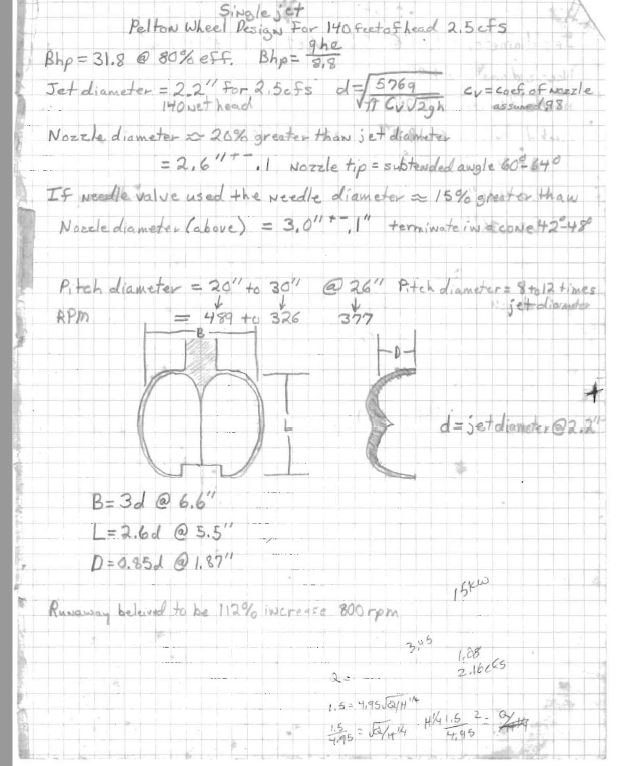 Single jet
Pelton Wheel Design For 140 feet of head 2.5cfs
Bhp = 31.8 @ 80% eff. Bhp = qhe/8.8
Jet diameter = 2.2" for 2.5cfs d = √576q/π Cv√2gh Cv = Coef. of Nozzle
140 net head assumed .98
Nozzle diameter ≈ 20% greater than jet diameter
= 2.6" +- .1 Nozzle tip = subtended angle 60°-64°
If Needle Valve used the Needle diameter ≈ 15% greater than
Nozzle diameter (above) = 3.0" +- .1" terminate in a cone 42°-48°
Pitch diameter = 20" to 30" @ 26" Pitch diameter = 8 to 12 times
↓ ↓ ↓ jet diameter
RPM = 489 to 326 377
B
D
L
d = jet diameter @ 2.2"
B = 3d @ 6.6"
L = 2.6d @ 5.5"
D = 0.85d @ 1.87"
15kW
Runaway beleived to be 112% increase 800 rpm
1.08
2.16cfs
1.5 = 4.95√Q/H 1/4
1.5/4.95 = √Q/H 1/4 H1/4 1.5/4.95 2 =